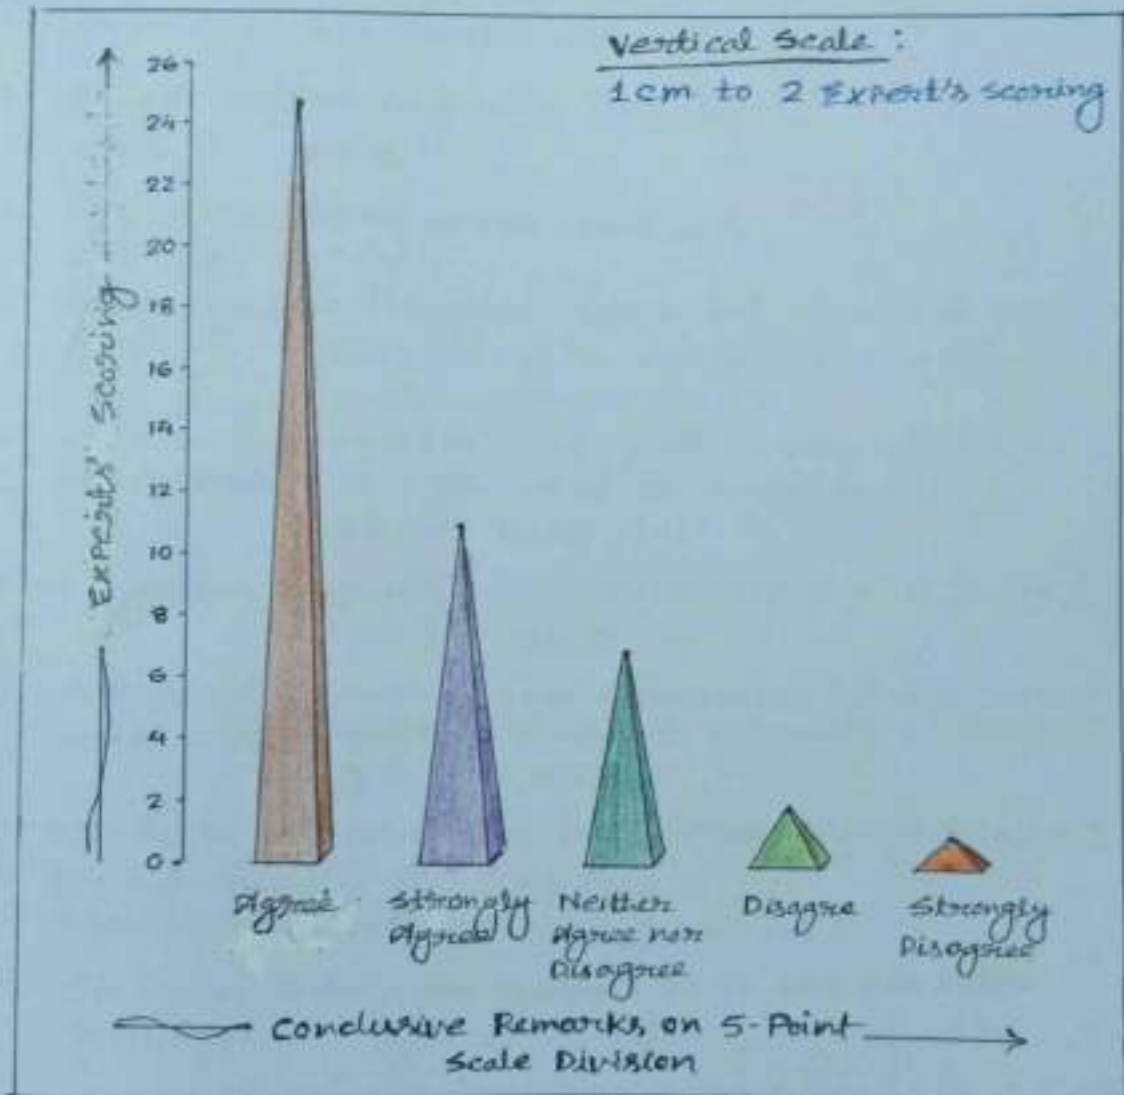 Vertical Scale :
1cm to 2 Expert's scoring
Experts' Scoring
26
24
22
20
18
16
14
12
10
8
6
4
2
0
Agree
Strongly
Agree
Neither
Agree nor
Disagree
Disagre
Strongly
Disagree
Conclusive Remarks, on 5-Point
Scale Division